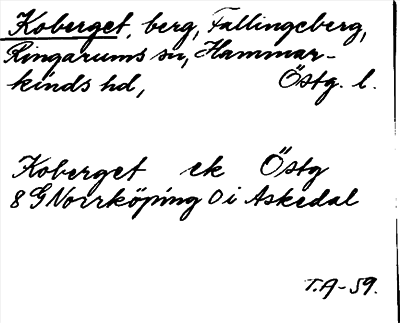 Koberget, berg, Fallingeberg,
Ringarums sn, Hammar-
kinds hd, Östg. l.
Koberget ek Östg
8 G Norrköping 0 i Askedal
T.A-59.